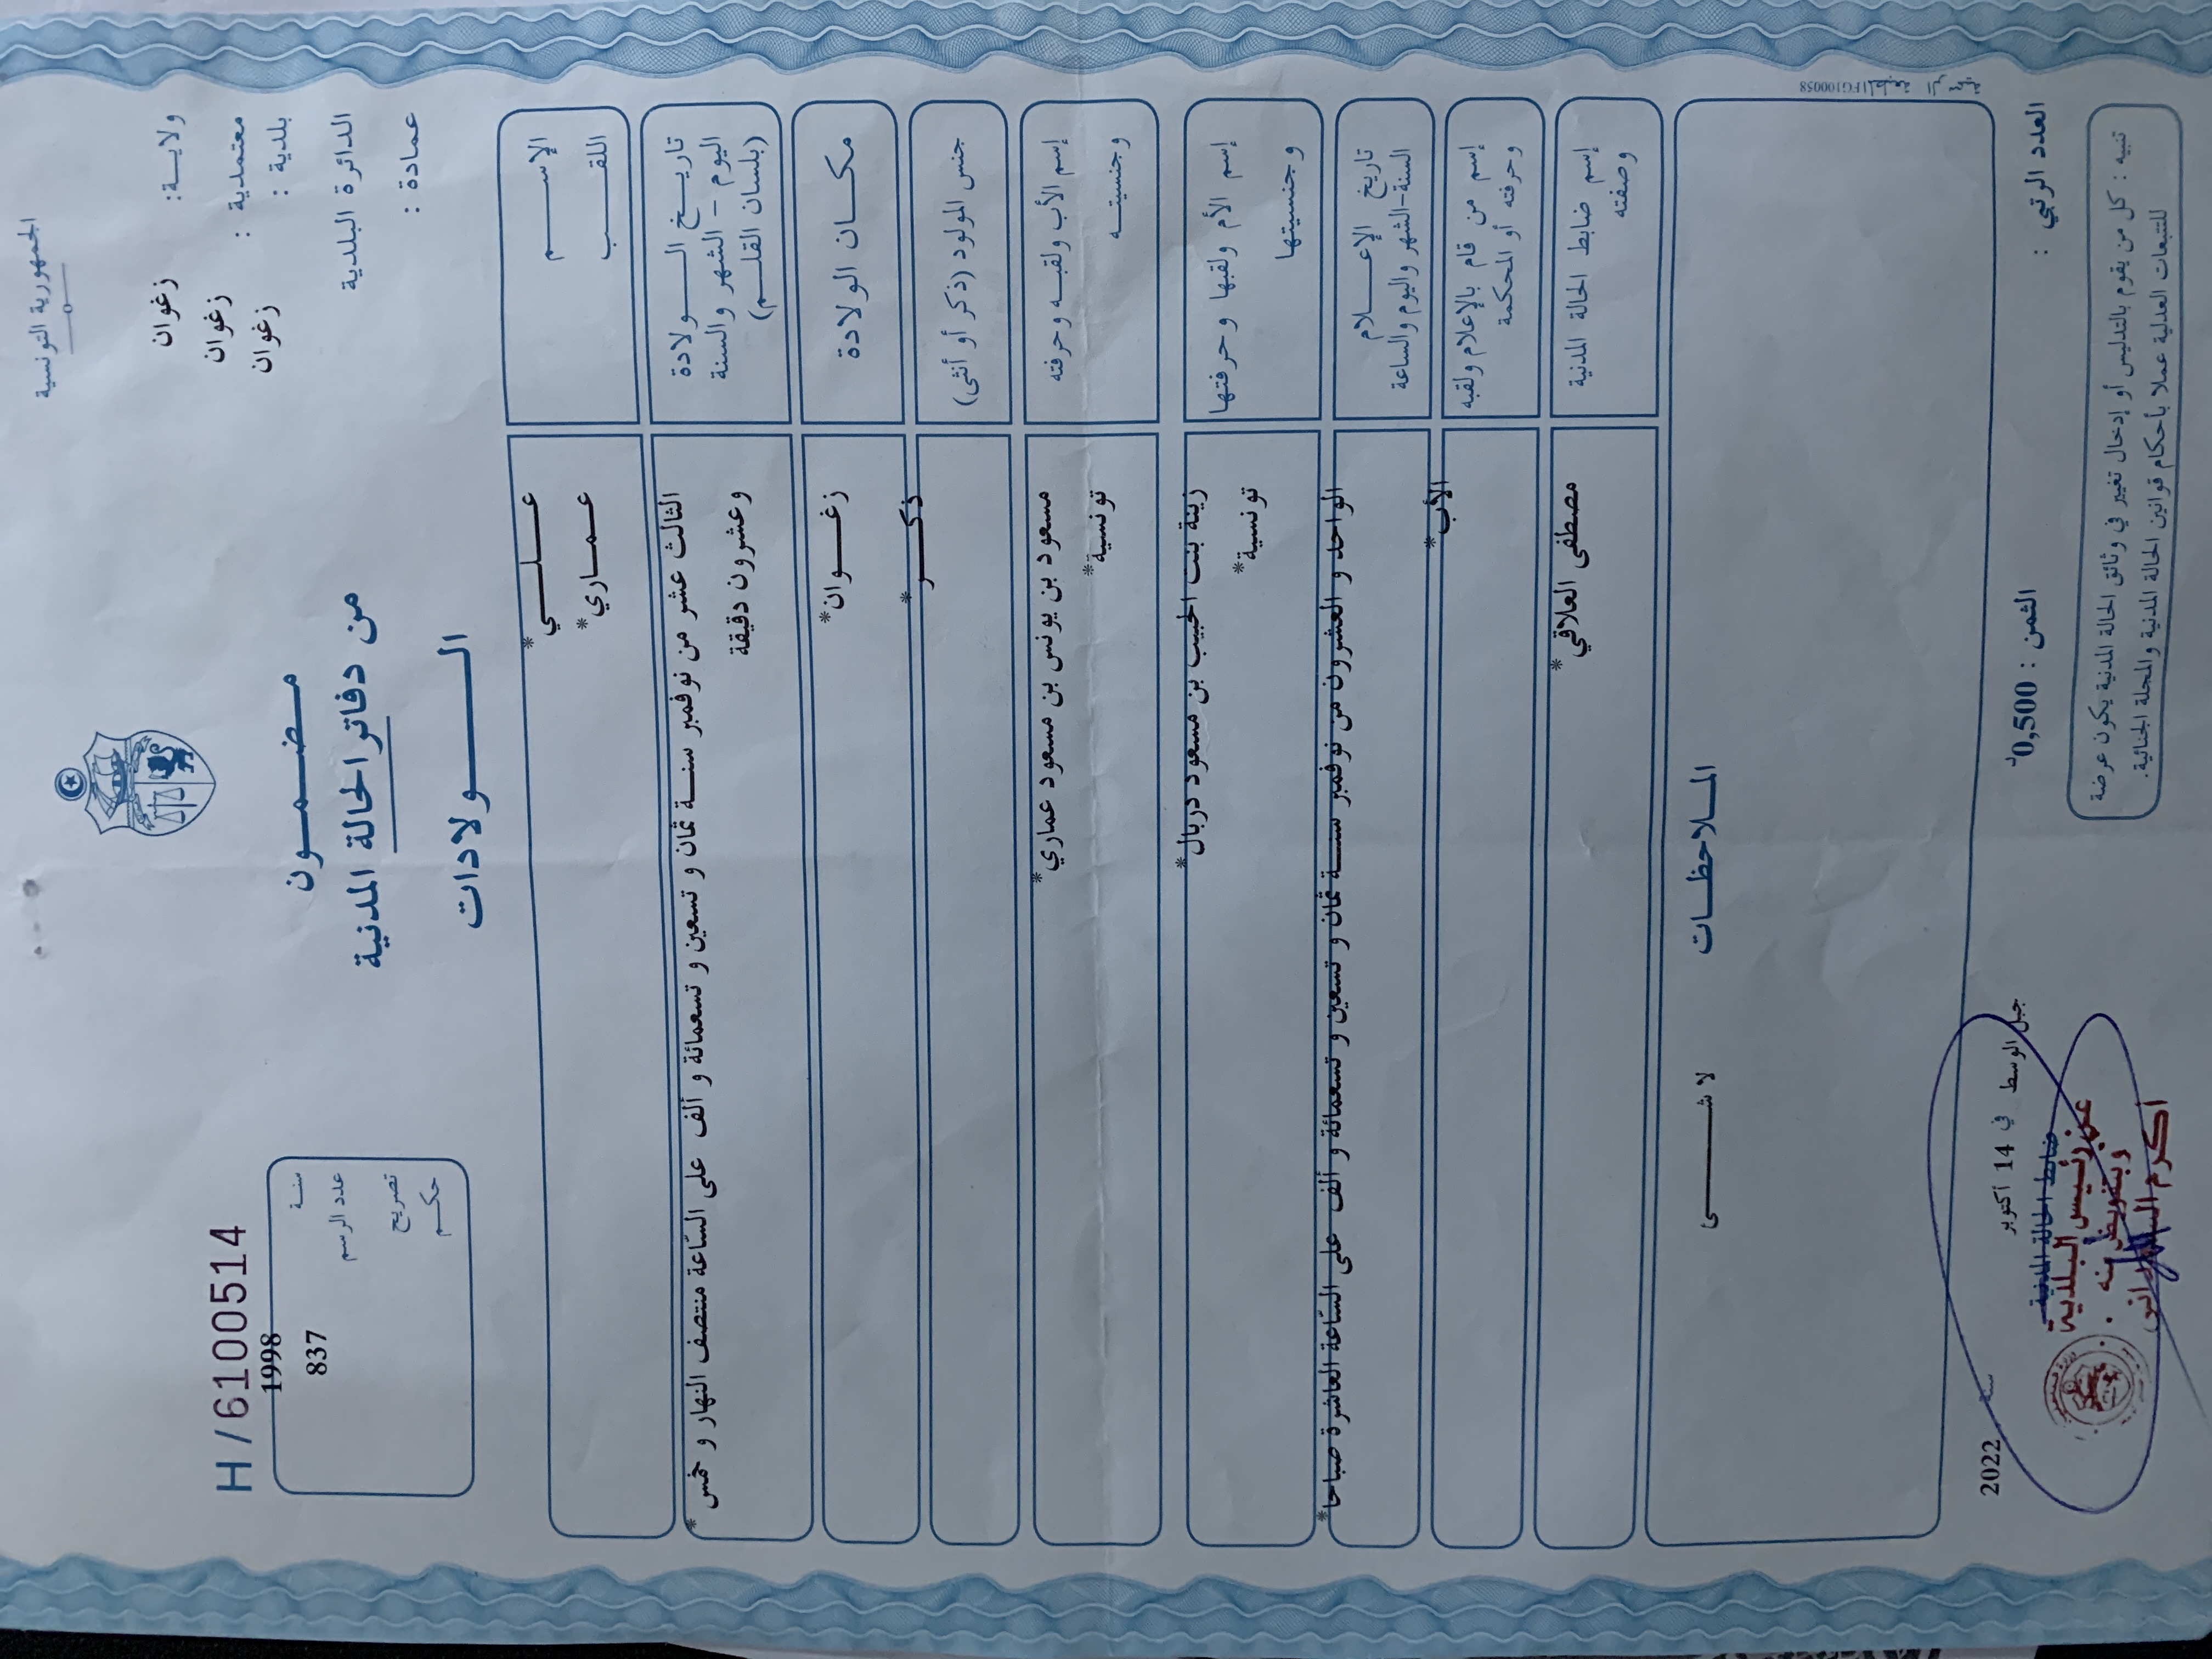 الجمهورية التونسية
ولايـــة: زغوان
معتمدية : زغوان
بلدية : زغوان
الدائرة البلدية
عمادة :
مـــضـــمـــون
من دفاتر الحالة المدنية
الـــــــولادات
H/6100514
سنـة 1998
عدد الرسم 837
تصريح
حكـم
الإســـــم عـــلـــي*
اللقـــب عـــمـــاري*
تاريـــخ الـــــولادة
اليوم - الشهر والسنة
(بلسان القلـــم)
الثالث عشر من نوفمبر سنـــة ثمان و تسعين و تسعمائة و ألف على السّاعة منتصف النهار و خمس *
وعشرون دقيقة
مكـــان الولادة زغـــوان*
جنس المولود (ذكر أو أنثى) ذكـــر*
إسم الأب ولقبـــه وحرفته مسعود بن يونس بن مسعود عماري*
وجنسيتـــه تونسية*
إسم الأم ولقبها وحرفتها زينة بنت الحبيب بن مسعود دربال*
وجنسيتها تونسية*
تاريخ الإعـــلام
السنة-الشهر واليوم والساعة
الواحد و العشرون من نوفمبر سنـــة ثمان و تسعين و تسعمائة و ألف على السّاعة العاشرة صباحا*
إسم من قام بالإعلام ولقبه
وحرفته أو المحكمة
الأب*
إسم ضابط الحالة المدنية
وصفته
مصطفى العلاقي*
المـــلاحظـــات
لا شـــــــى
المطبعة الرسمية FG100058
العدد الرتبي :
الثمن : 0,500د
جبل الوسط في 14 أكتوبر سنة 2022
ضابط الحالة المدنية
عن رئيس البلدية
وبتفويض منه
أكرم
تنبيه : كل من يقوم بالتدليس أو إدخال تغيير في وثائق الحالة المدنية يكون عرضة
للتتبعات العدلية عملا بأحكام قوانين الحالة المدنية والمجلة الجنائية.